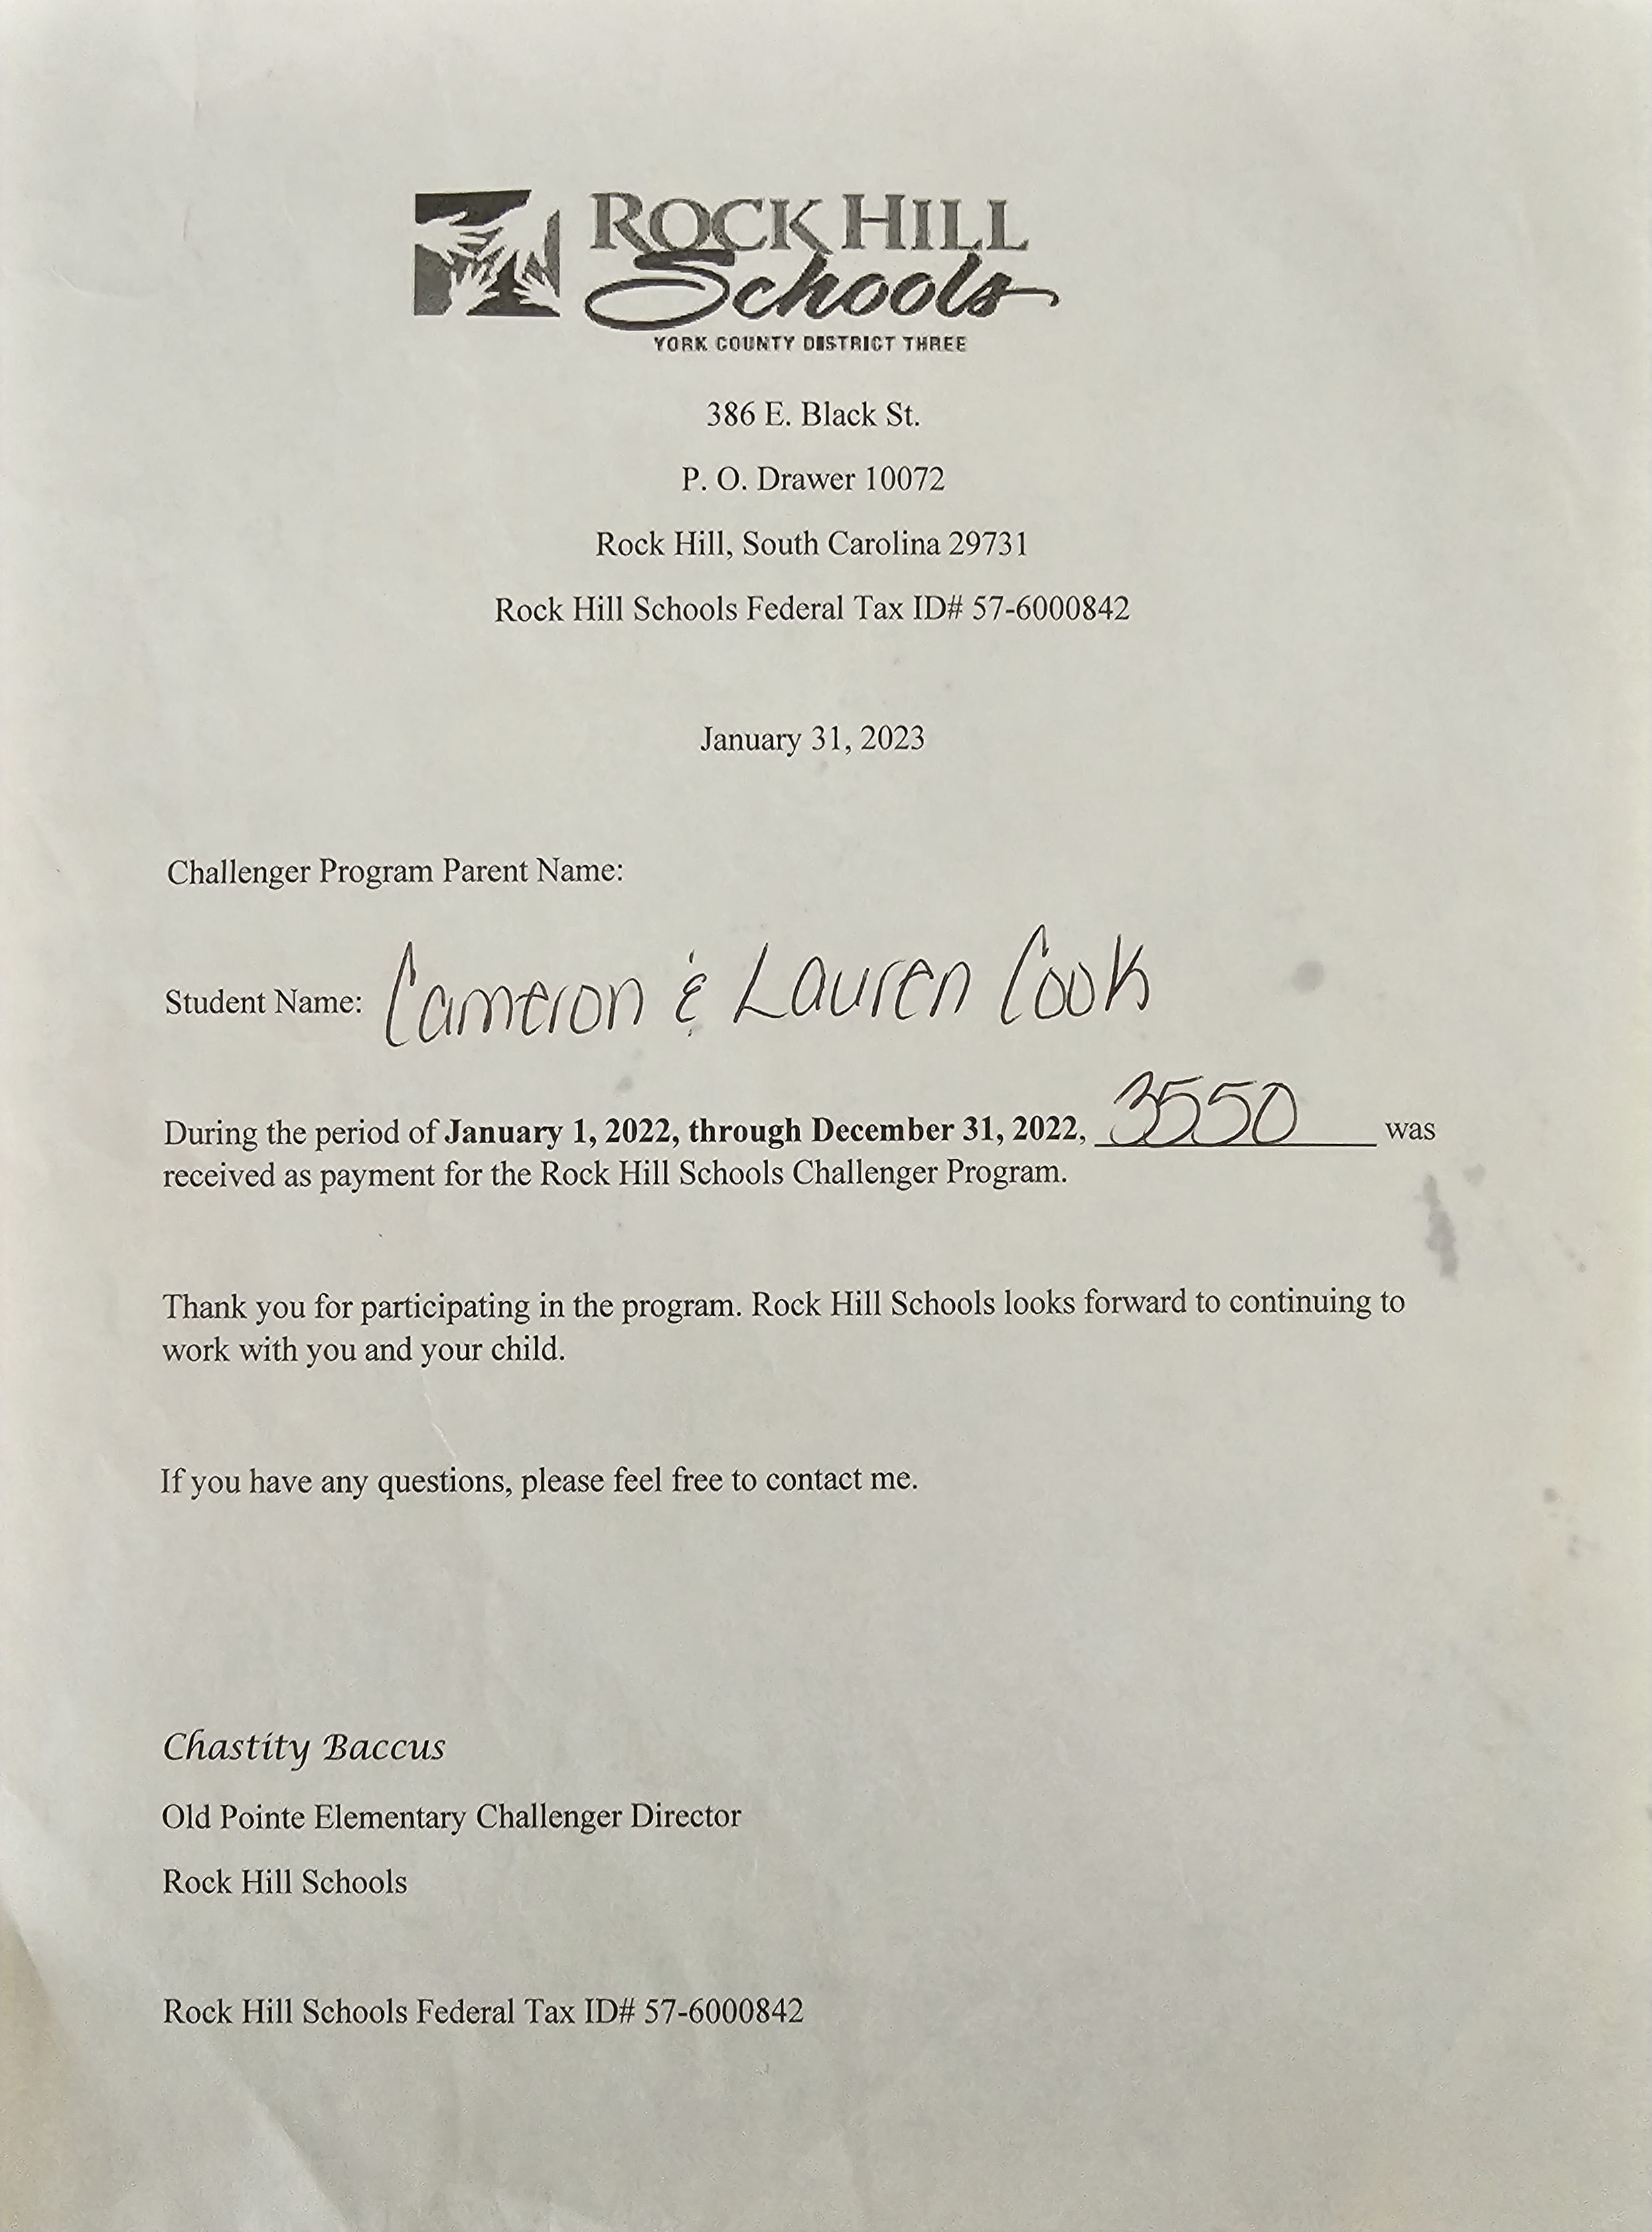 ROCK HILL
Schools
YORK COUNTY DISTRICT THREE
386 E. Black St.
P. O. Drawer 10072
Rock Hill, South Carolina 29731
Rock Hill Schools Federal Tax ID# 57-6000842
January 31, 2023
Challenger Program Parent Name:
Student Name: Cameron & Lauren Cook
During the period of January 1, 2022, through December 31, 2022, 3550 was
received as payment for the Rock Hill Schools Challenger Program.
Thank you for participating in the program. Rock Hill Schools looks forward to continuing to
work with you and your child.
If you have any questions, please feel free to contact me.
Chastity Baccus
Old Pointe Elementary Challenger Director
Rock Hill Schools
Rock Hill Schools Federal Tax ID# 57-6000842